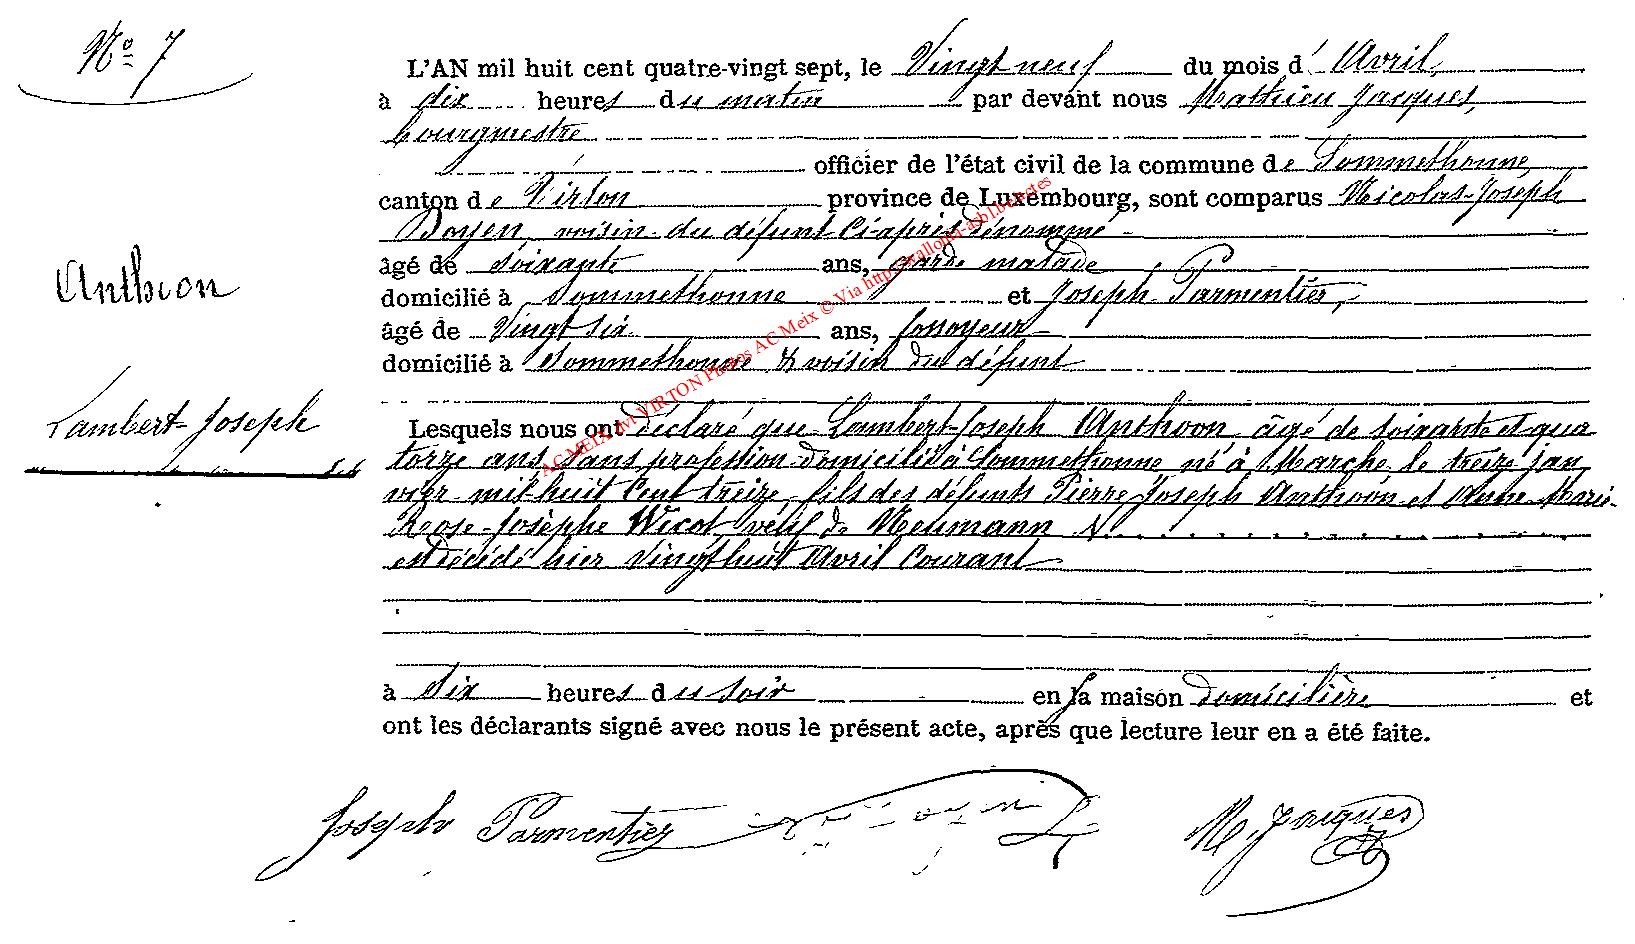 Nº 7
L'AN mil huit cent quatre-vingt sept, le Vingt neuf du mois d' Avril,
à dix heures du matin par devant nous Mathieu Jacques,
bourgmestre
officier de l'état civil de la commune de Sommethonne,
canton de Virton province de Luxembourg, sont comparus Nicolas-Joseph
Doyen, voisin du défunt ci-après dénommé
âgé de soixante ans, garde malade
domicilié à Sommethonne et Joseph Parmentier,
âgé de Vingt six ans, fossoyeur
domicilié à Sommethonne & voisin du défunt
Anthoon
Lambert-Joseph
Lesquels nous ont déclaré que Lambert-Joseph Anthoon, âgé de soixante et qua
torze ans, sans profession domicilié à Sommethonne né à Marche le treize jan
vier mil huit cent treize, fils des défunts Pierre Joseph Anthoon et Anne Marie
Rose-Josèphe Wicot, veuf de Neumann N.
est décédé hier vingt huit Avril courant
à six heures du soir en sa maison domicilière et
ont les déclarants signé avec nous le présent acte, après que lecture leur en a été faite.
Joseph Parmentier M. Jacques
AC MEIX dvt VIRTON Photos AC Meix © Via https://wallonia-asbl.be/actes